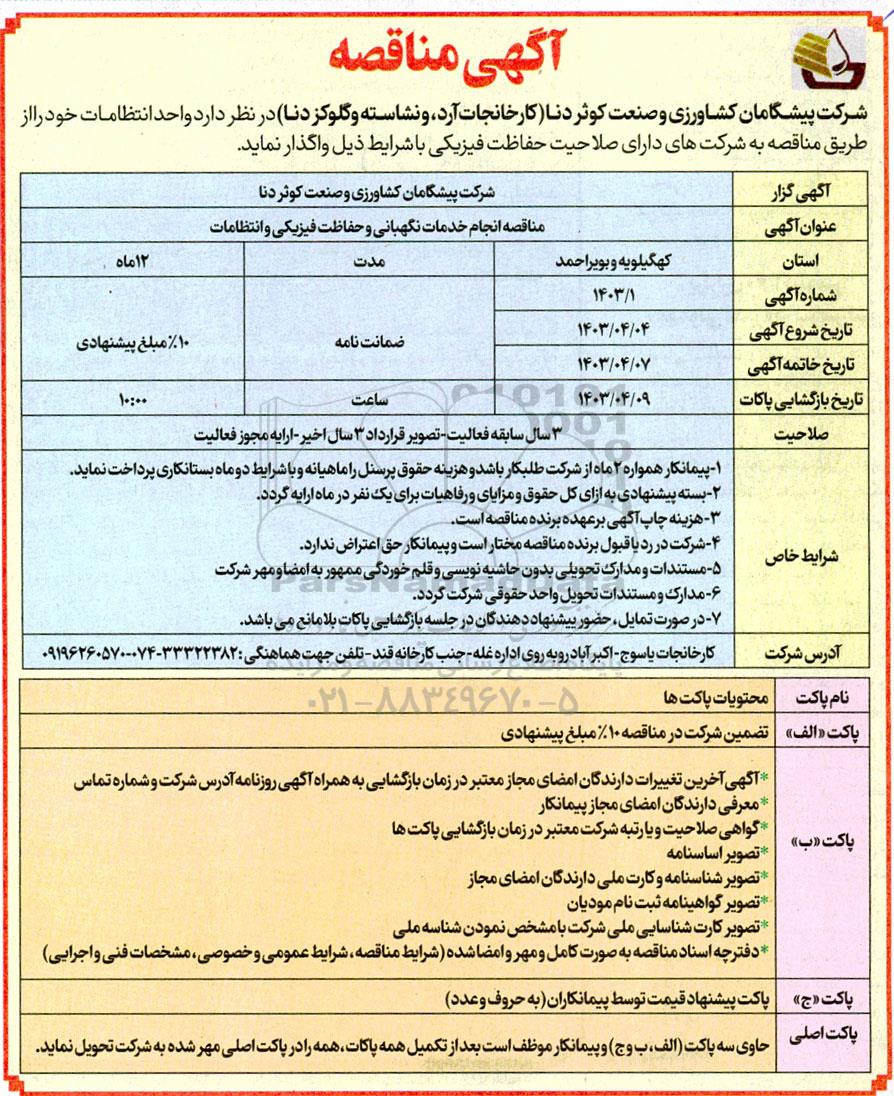 آگهی مناقصه
شرکت پیشگامان کشاورزی و صنعت کوثر دنا (کارخانجات آرد، و نشاسته وگلوکز دنا) در نظر دارد واحد انتظامات خود را از
طریق مناقصه به شرکت های دارای صلاحیت حفاظت فیزیکی با شرایط ذیل واگذار نماید.
آگهی گزار شرکت پیشگامان کشاورزی و صنعت کوثر دنا
عنوان آگهی مناقصه انجام خدمات نگهبانی و حفاظت فیزیکی و انتظامات
استان کهگیلویه و بویراحمد مدت ۱۲ماه
شماره آگهی ۱۴۰۳/۱
تاریخ شروع آگهی ۱۴۰۳/۰۴/۰۴ ضمانت نامه ۱۰٪ مبلغ پیشنهادی
تاریخ خاتمه آگهی ۱۴۰۳/۰۴/۰۷
تاریخ بازگشایی پاکات ۱۴۰۳/۰۴/۰۹ ساعت ۱۰:۰۰
صلاحیت ۳ سال سابقه فعالیت-تصویر قرارداد ۳ سال اخیر -ارایه مجوز فعالیت
شرایط خاص
۱-پیمانکار همواره ۲ ماه از شرکت طلبکار باشد و هزینه حقوق پرسنل را ماهیانه و با شرایط دو ماه بستانکاری پرداخت نماید.
۲-بسته پیشنهادی به ازای کل حقوق و مزایای و رفاهیات برای یک نفر در ماه ارایه گردد.
۳-هزینه چاپ آگهی بر عهده برنده مناقصه است.
۴-شرکت در رد یا قبول برنده مناقصه مختار است و پیمانکار حق اعتراض ندارد.
۵-مستندات و مدارک تحویلی بدون حاشیه نویسی و قلم خوردگی ممهور به امضا و مهر شرکت
۶-مدارک و مستندات تحویل واحد حقوقی شرکت گردد.
۷-در صورت تمایل، حضور پیشنهاد دهندگان در جلسه بازگشایی پاکات بلامانع می باشد.
آدرس شرکت کارخانجات یاسوج-اکبرآباد روبه روی اداره غله-جنب کارخانه قند-تلفن جهت هماهنگی: ۳۳۳۲۲۳۸۲-۰۷۴-۰۹۱۹۶۲۶۰۵۷۰
ParsNamadData
پایگاه اطلاع رسانی مناقصه و مزایده
۰۲۱-۸۸۳۴۹۶۷۰-۵
نام پاکت محتویات پاکت ها
پاکت «الف» تضمین شرکت در مناقصه ۱۰٪ مبلغ پیشنهادی
پاکت «ب»
*آگهی آخرین تغییرات دارندگان امضای مجاز معتبر در زمان بازگشایی به همراه آگهی روزنامه آدرس شرکت و شماره تماس
*معرفی دارندگان امضای مجاز پیمانکار
*گواهی صلاحیت و یا رتبه شرکت معتبر در زمان بازگشایی پاکت ها
*تصویر اساسنامه
*تصویر شناسنامه و کارت ملی دارندگان امضای مجاز
*تصویر گواهینامه ثبت نام مودیان
*تصویر کارت شناسایی ملی شرکت با مشخص نمودن شناسه ملی
*دفترچه اسناد مناقصه به صورت کامل و مهر و امضا شده (شرایط مناقصه، شرایط عمومی و خصوصی، مشخصات فنی و اجرایی)
پاکت «ج» پاکت پیشنهاد قیمت توسط پیمانکاران (به حروف و عدد)
پاکت اصلی حاوی سه پاکت (الف، ب و ج) و پیمانکار موظف است بعد از تکمیل همه پاکات، همه را در پاکت اصلی مهر شده به شرکت تحویل نماید.